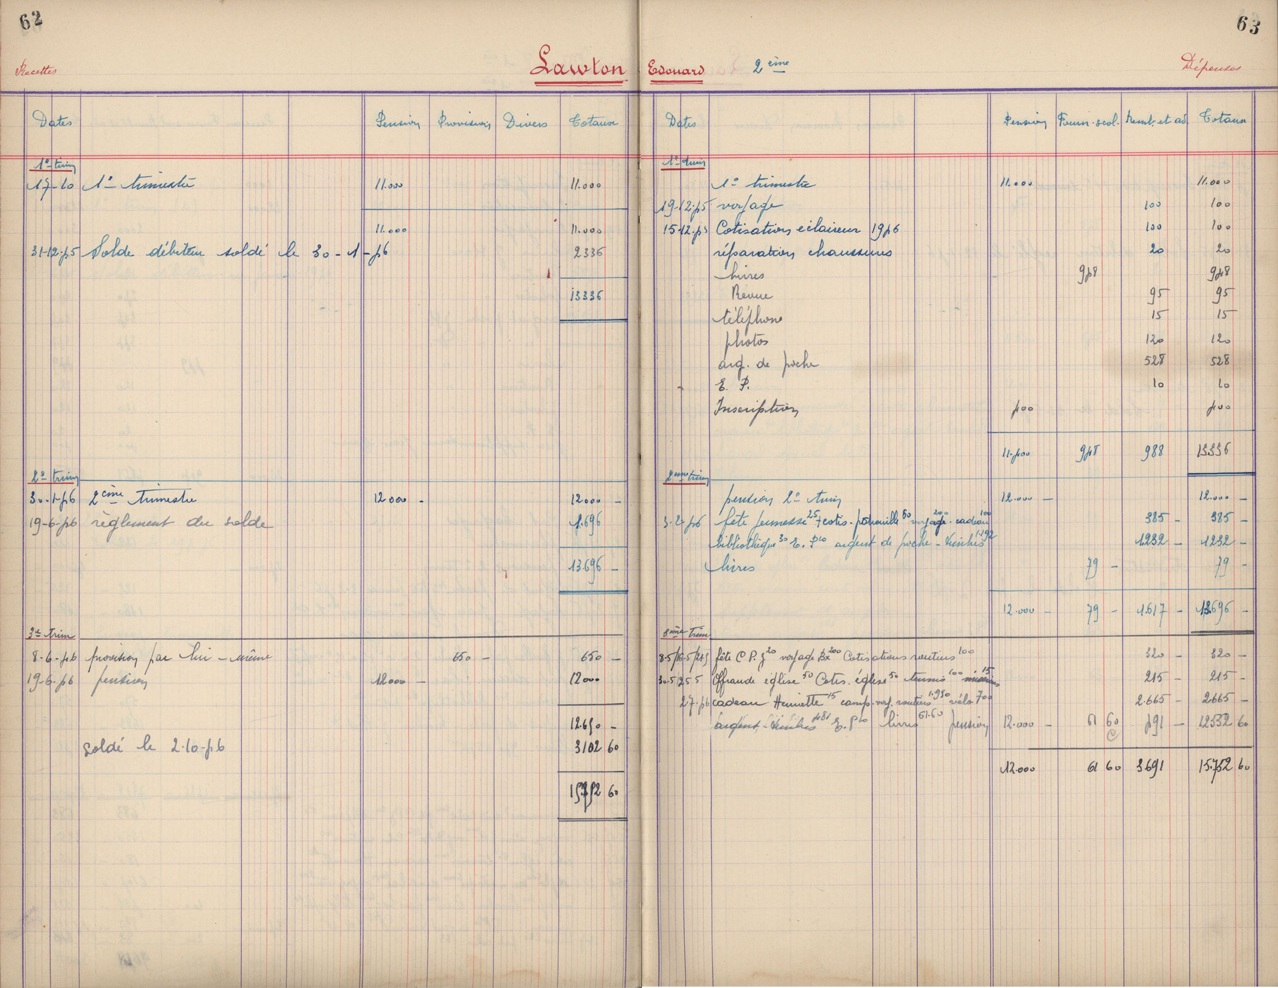 62
63
Recettes
Lawton Edouard 2ème
Dépenses
Dates Pension Provision Divers Totaux
1er trim
17-10 1er trimestre 11.000 11.000
11.000 11.000
31-12-55 Solde débiteur soldé le 30-1-56 2336
13336
2e trim
30-1-56 2ème trimestre 12000 - 12000 -
19-6-56 règlement du solde 1.696
13.696 -
3e trim
8-6-56 provision par lui-même 650 - 650 -
19-6-56 pension 12000 - 12000
12650 -
Soldé le 2-10-56 3102 60
15752 60
Dates Pension Fourn. scol. Remb. et ad. Totaux
1er trim
1er trimestre 11.000 11.000
19-12-55 voyage 100 100
15-12-55 Cotisation éclaireur 1956 100 100
réparation chaussures 20 20
livres 848 848
Revue 95 95
téléphone 15 15
photos 120 120
arg. de poche 528 528
E. P. 10 10
Inscription 500 500
11.500 848 988 13336
2ème trim
pension 2e trim 12.000 - 12.000 -
3-2-56 fête jeunesse 25 cotis. patrouille 60 voyage 200 cadeau 100 385 - 385 -
bibliothèque 30 E. P 10 argent de poche - 1192 1232 - 1232 -
livres 79 - 79 -
12.000 - 79 - 1617 - 13696 -
3ème trim
fête C.P. 20 voyage 200 Cotisations routiers 100 320 - 320 -
Offrande église 50 Cotis. église 50 tennis 100 15 215 - 215 -
cadeau Henriette 15 camp. voy. routiers 1950 vélo 700 2.665 - 2.665 -
argent - 481 E. P 10 livres 61.60 pension 12.000 - 61 60 491 - 12552 60
12.000 61 60 3691 15.752 60